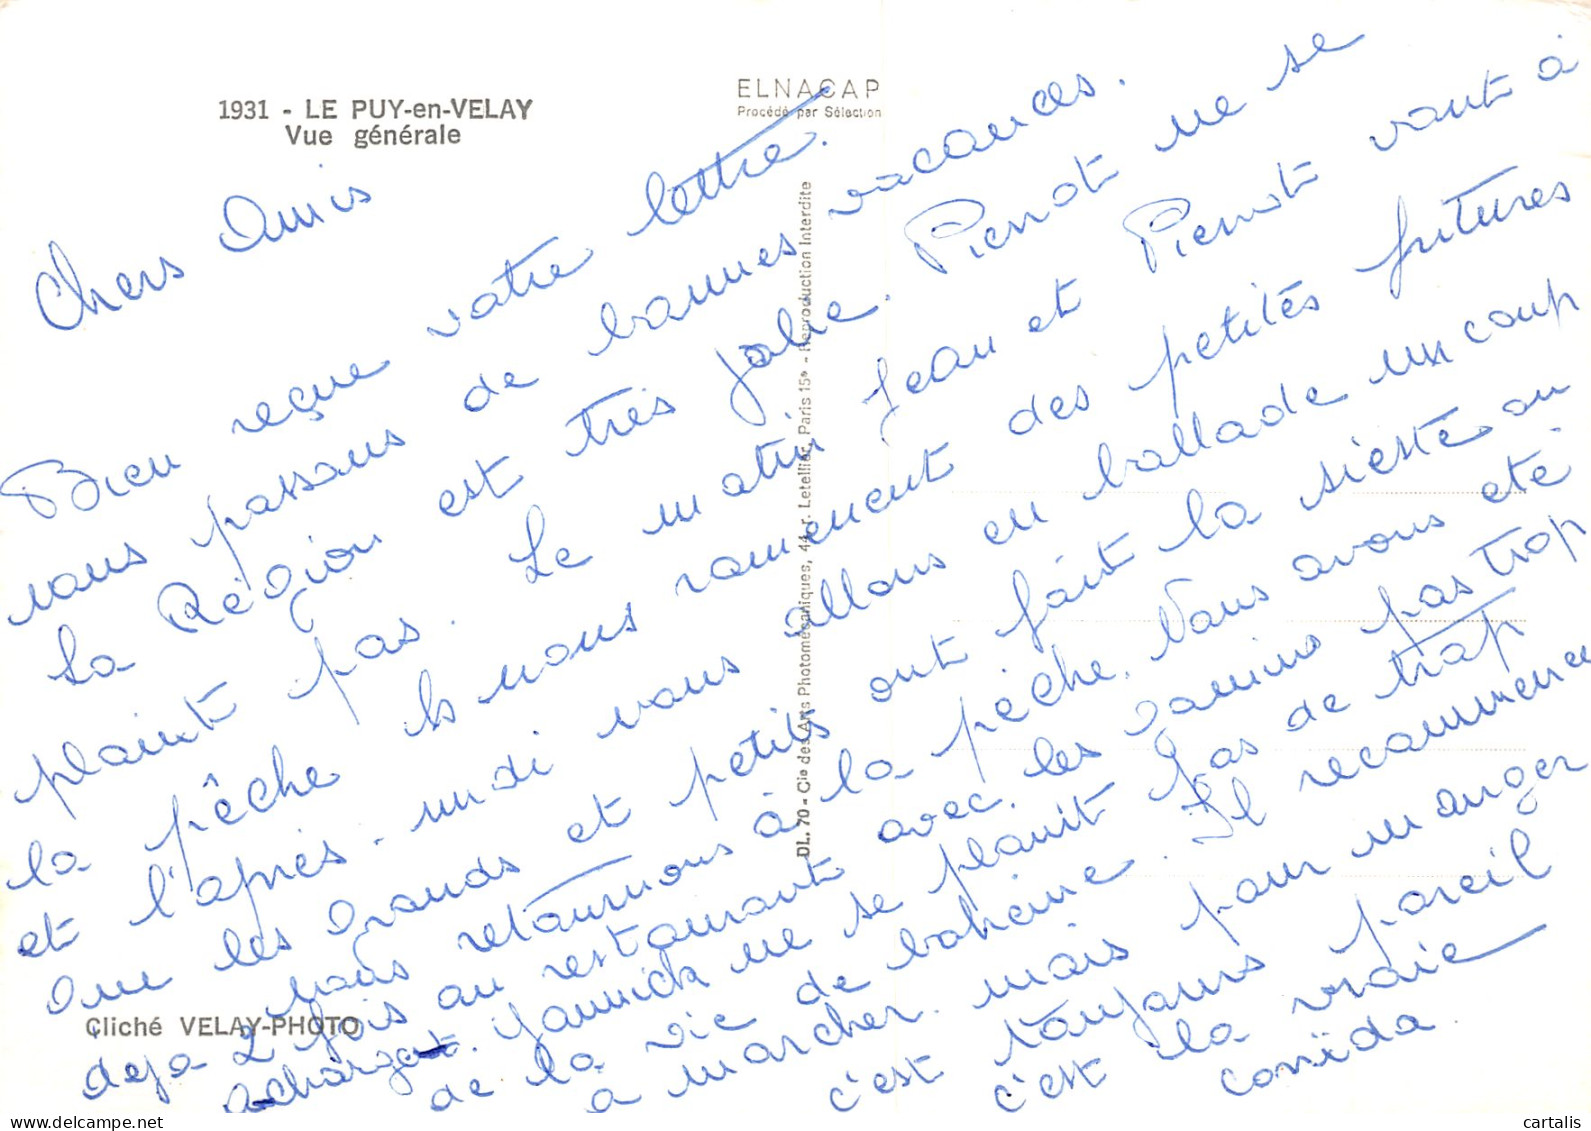 1931 - LE PUY-en-VELAY
Vue générale
ELNACAP
Procédé par Sélection
DL. 70 - Cie des Arts Photomécaniques, 44, r. Letellier, Paris 15e - Reproduction Interdite
Chers Amis
Bien reçue votre lettre.
nous passons de bonnes vacances.
La Région est très jolie. Pierrot ne se
plaint pas. Le matin Jean et Pierrot vont à
la pêche Ils nous ramènent des petites fritures
et l'après-midi nous allons en ballade un coup
que les grands et petits ont fait la sieste ou
nous retournons à la pêche. Nous avons été
deja 2 fois au restaurant avec les gamins pas trop
Yannick ne se plaint pas de trop
de la vie de bohème. Il recommence
a marcher. mais pour manger
c'est toujours pareil
c'est la vraie
corrida.
Cliché VELAY-PHOTO
cartalis